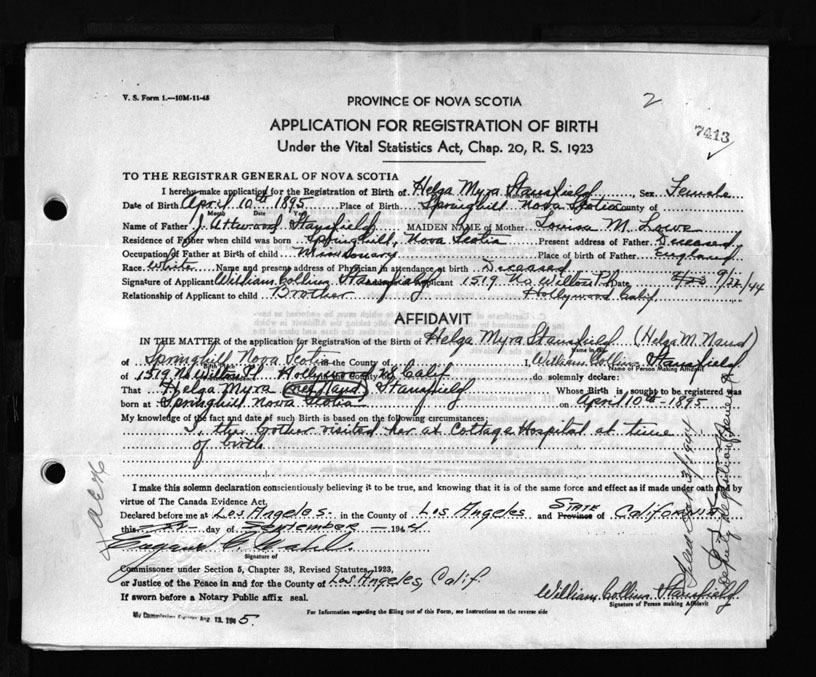 V. S. Form 1.—10M-11-45
2
PROVINCE OF NOVA SCOTIA
APPLICATION FOR REGISTRATION OF BIRTH
7413
Under the Vital Statistics Act, Chap. 20, R. S. 1923
TO THE REGISTRAR GENERAL OF NOVA SCOTIA
I hereby make application for the Registration of Birth of Helga Myra Stansfield, Sex Female
Date of Birth April 10th 1895 Place of Birth Springhill Nova Scotia County of
Month Date
Name of Father J. Attwood Stansfield MAIDEN NAME of Mother Louisa M. Lowe
Residence of Father when child was born Springhill, Nova Scotia Present address of Father Deceased
Occupation of Father at Birth of child Missionary Place of birth of Father England
Race White Name and present address of Physician in attendance at birth Deceased
Signature of Applicant William Collins Stansfield Applicant 1519 No. Wilton Pl. Date 9/22/44
Relationship of Applicant to child Brother Hollywood Calif.
AFFIDAVIT
IN THE MATTER of the application for the Registration of the Birth of Helga Myra Stansfield (Helga M. Naud)
of Springhill Nova Scotia in the County of I, William Collins Stansfield
Name of Person making Affidavit
of 1519 No. Wilton Pl. Hollywood Calif do solemnly declare:
That Helga Myra Stansfield Whose Birth is sought to be registered was
born at Springhill Nova Scotia on April 10th - 1895
My knowledge of the fact and date of such Birth is based on the following circumstances:
I, the brother visited her at Cottage Hospital at time
of birth
I make this solemn declaration conscientiously believing it to be true, and knowing that it is of the same force and effect as if made under oath and by
virtue of The Canada Evidence Act.
Declared before me at Los Angeles in the County of Los Angeles and STATE Province of California
this day of September - 1944
Signature of
Commissioner under Section 5, Chapter 38, Revised Statutes, 1923,
or Justice of the Peace in and for the County of Los Angeles, Calif.
If sworn before a Notary Public affix seal.
William Collins Stansfield
Signature of Person making Affidavit
For Information regarding the filling out of this Form, see Instructions on the reverse side
My Commission Expires Aug. 13, 1945.